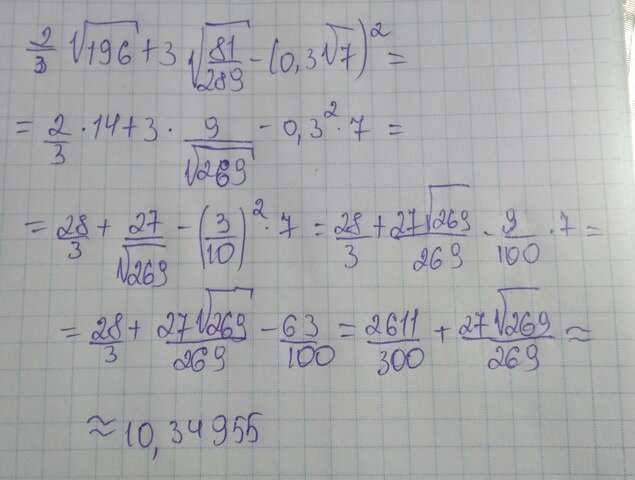 2/3 √196 + 3 √(81/289) - (0,3√7)² =
= 2/3 · 14 + 3 · 9/√269 - 0,3² · 7 =
= 28/3 + 27/√269 - (3/10)² · 7 = 28/3 + 27√269/269 - 9/100 · 7 =
= 28/3 + 27√269/269 - 63/100 = 2611/300 + 27√269/269 ≈
≈ 10,34955